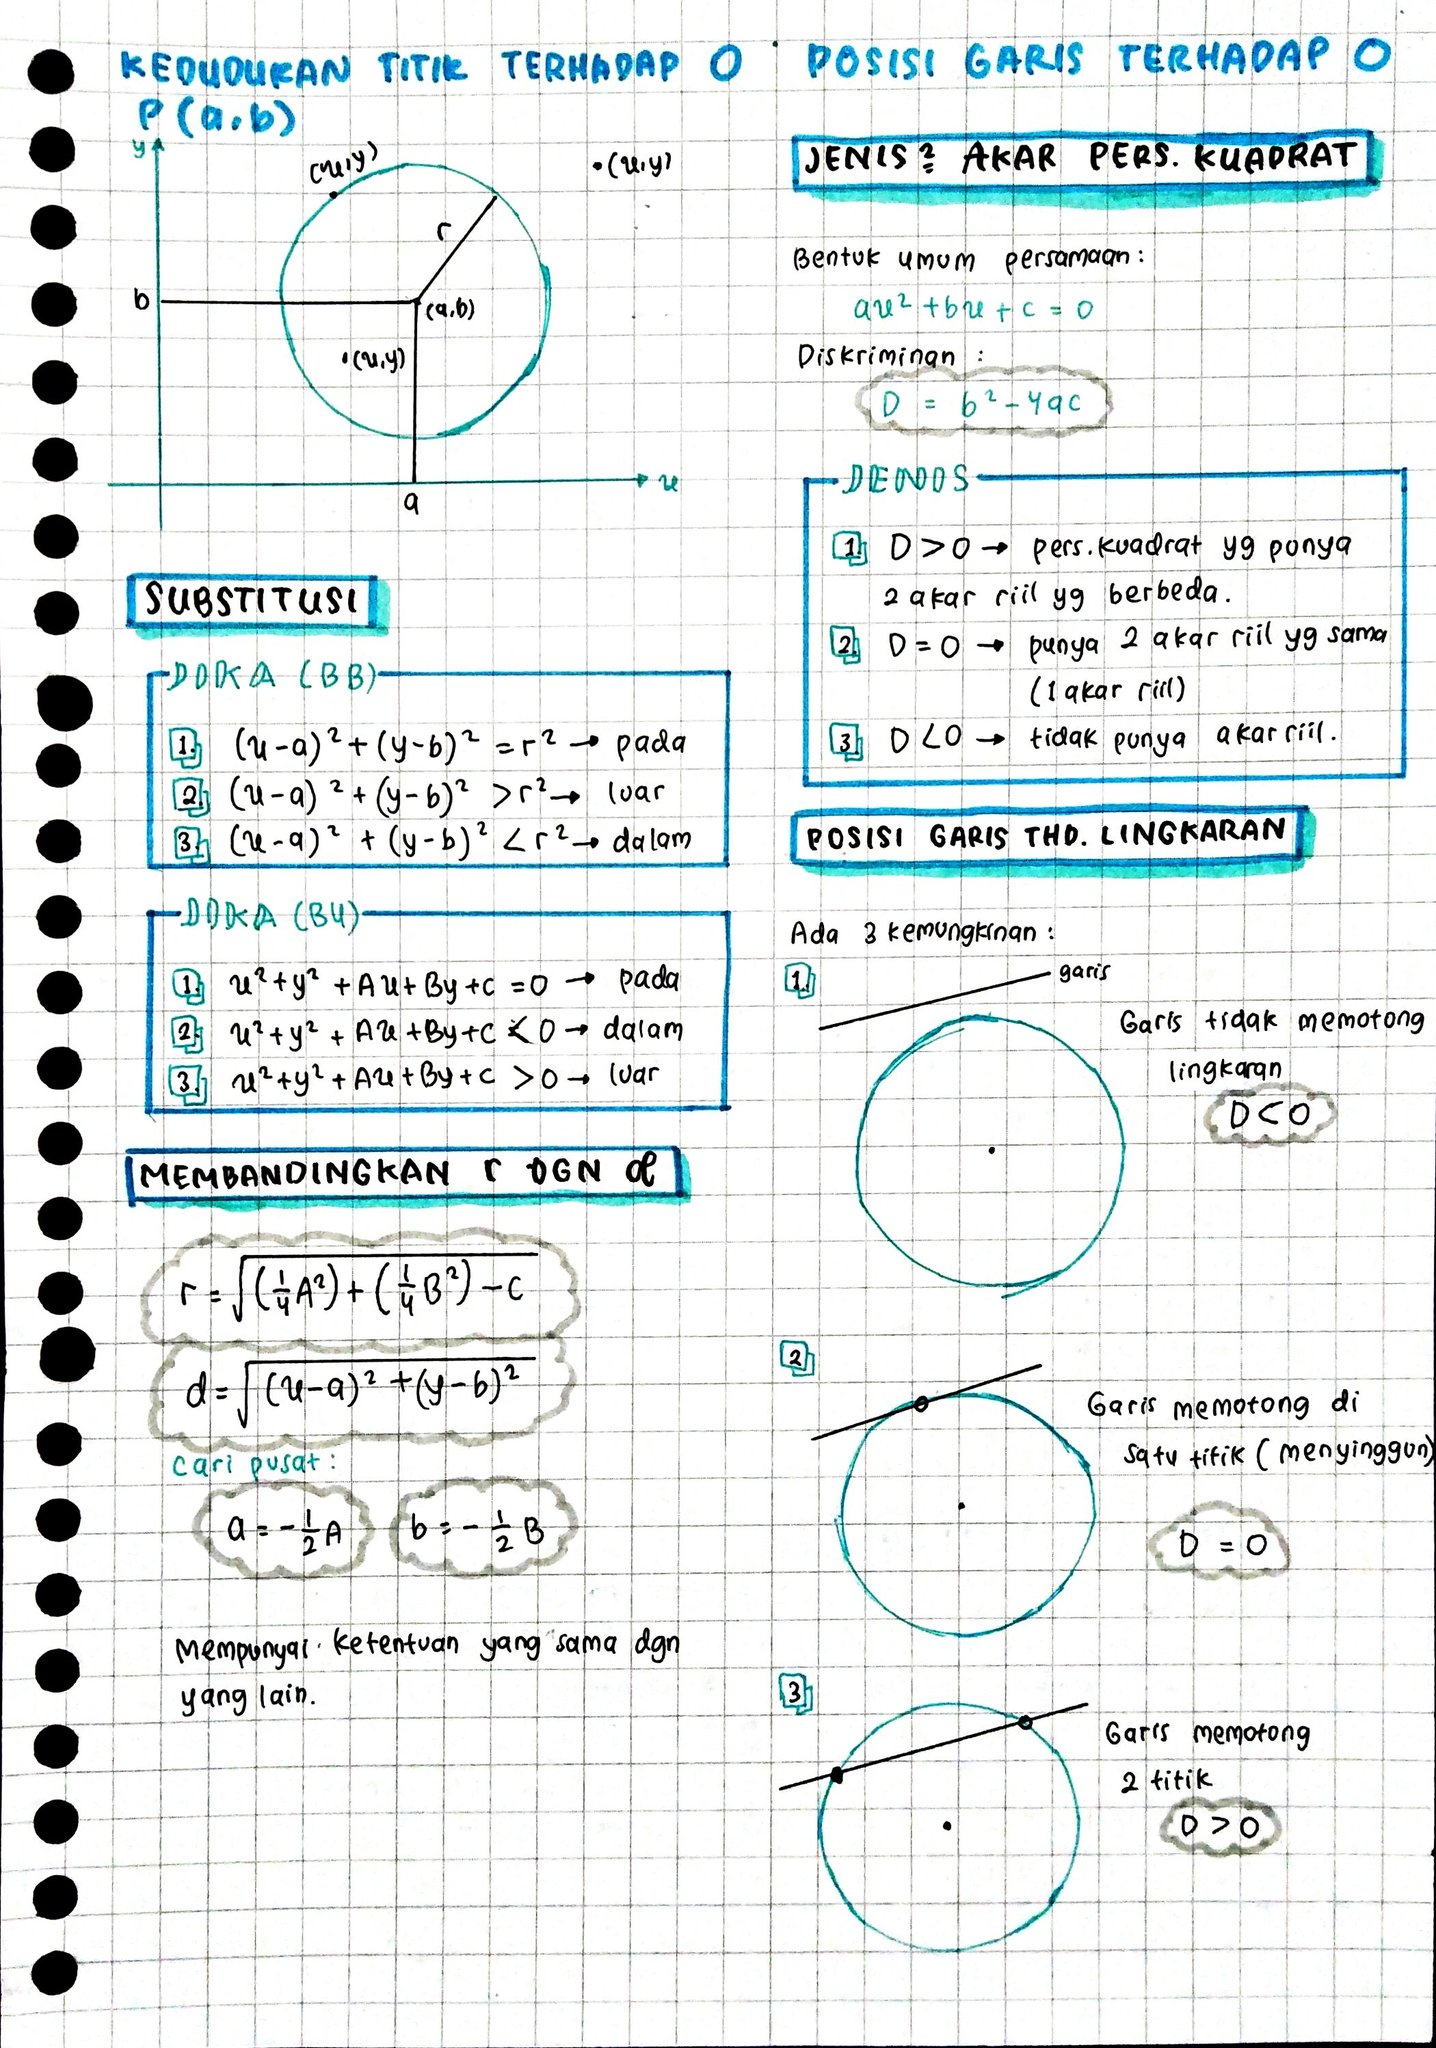 KEDUDUKAN TITIK TERHADAP O
P(a,b)
y
(x,y)
•(x,y)
r
b
(a,b)
•(x,y)
a
x
SUBSTITUSI
JIKA (BB)
1. (x-a)² + (y-b)² = r² → pada
2. (x-a)² + (y-b)² > r² → luar
3. (x-a)² + (y-b)² < r² → dalam
JIKA (BU)
1. x² + y² + Ax + By + C = 0 → pada
2. x² + y² + Ax + By + C < 0 → dalam
3. x² + y² + Ax + By + C > 0 → luar
MEMBANDINGKAN r DGN d
r = √(¼A²) + (¼B²) - C
d = √(x-a)² + (y-b)²
Cari pusat :
a = -½A b = -½B
Mempunyai ketentuan yang sama dgn
yang lain.
POSISI GARIS TERHADAP O
JENIS² AKAR PERS. KUADRAT
Bentuk umum persamaan :
ax² + bx + c = 0
Diskriminan :
D = b² - 4ac
JENIS
1. D > 0 → pers. kuadrat yg punya
2 akar riil yg berbeda.
2. D = 0 → punya 2 akar riil yg sama
(1 akar riil)
3. D < 0 → tidak punya akar riil.
POSISI GARIS THD. LINGKARAN
Ada 3 kemungkinan :
1.
garis
Garis tidak memotong
lingkaran
D < 0
2
Garis memotong di
satu titik (menyinggun)
D = 0
3
Garis memotong
2 titik
D > 0